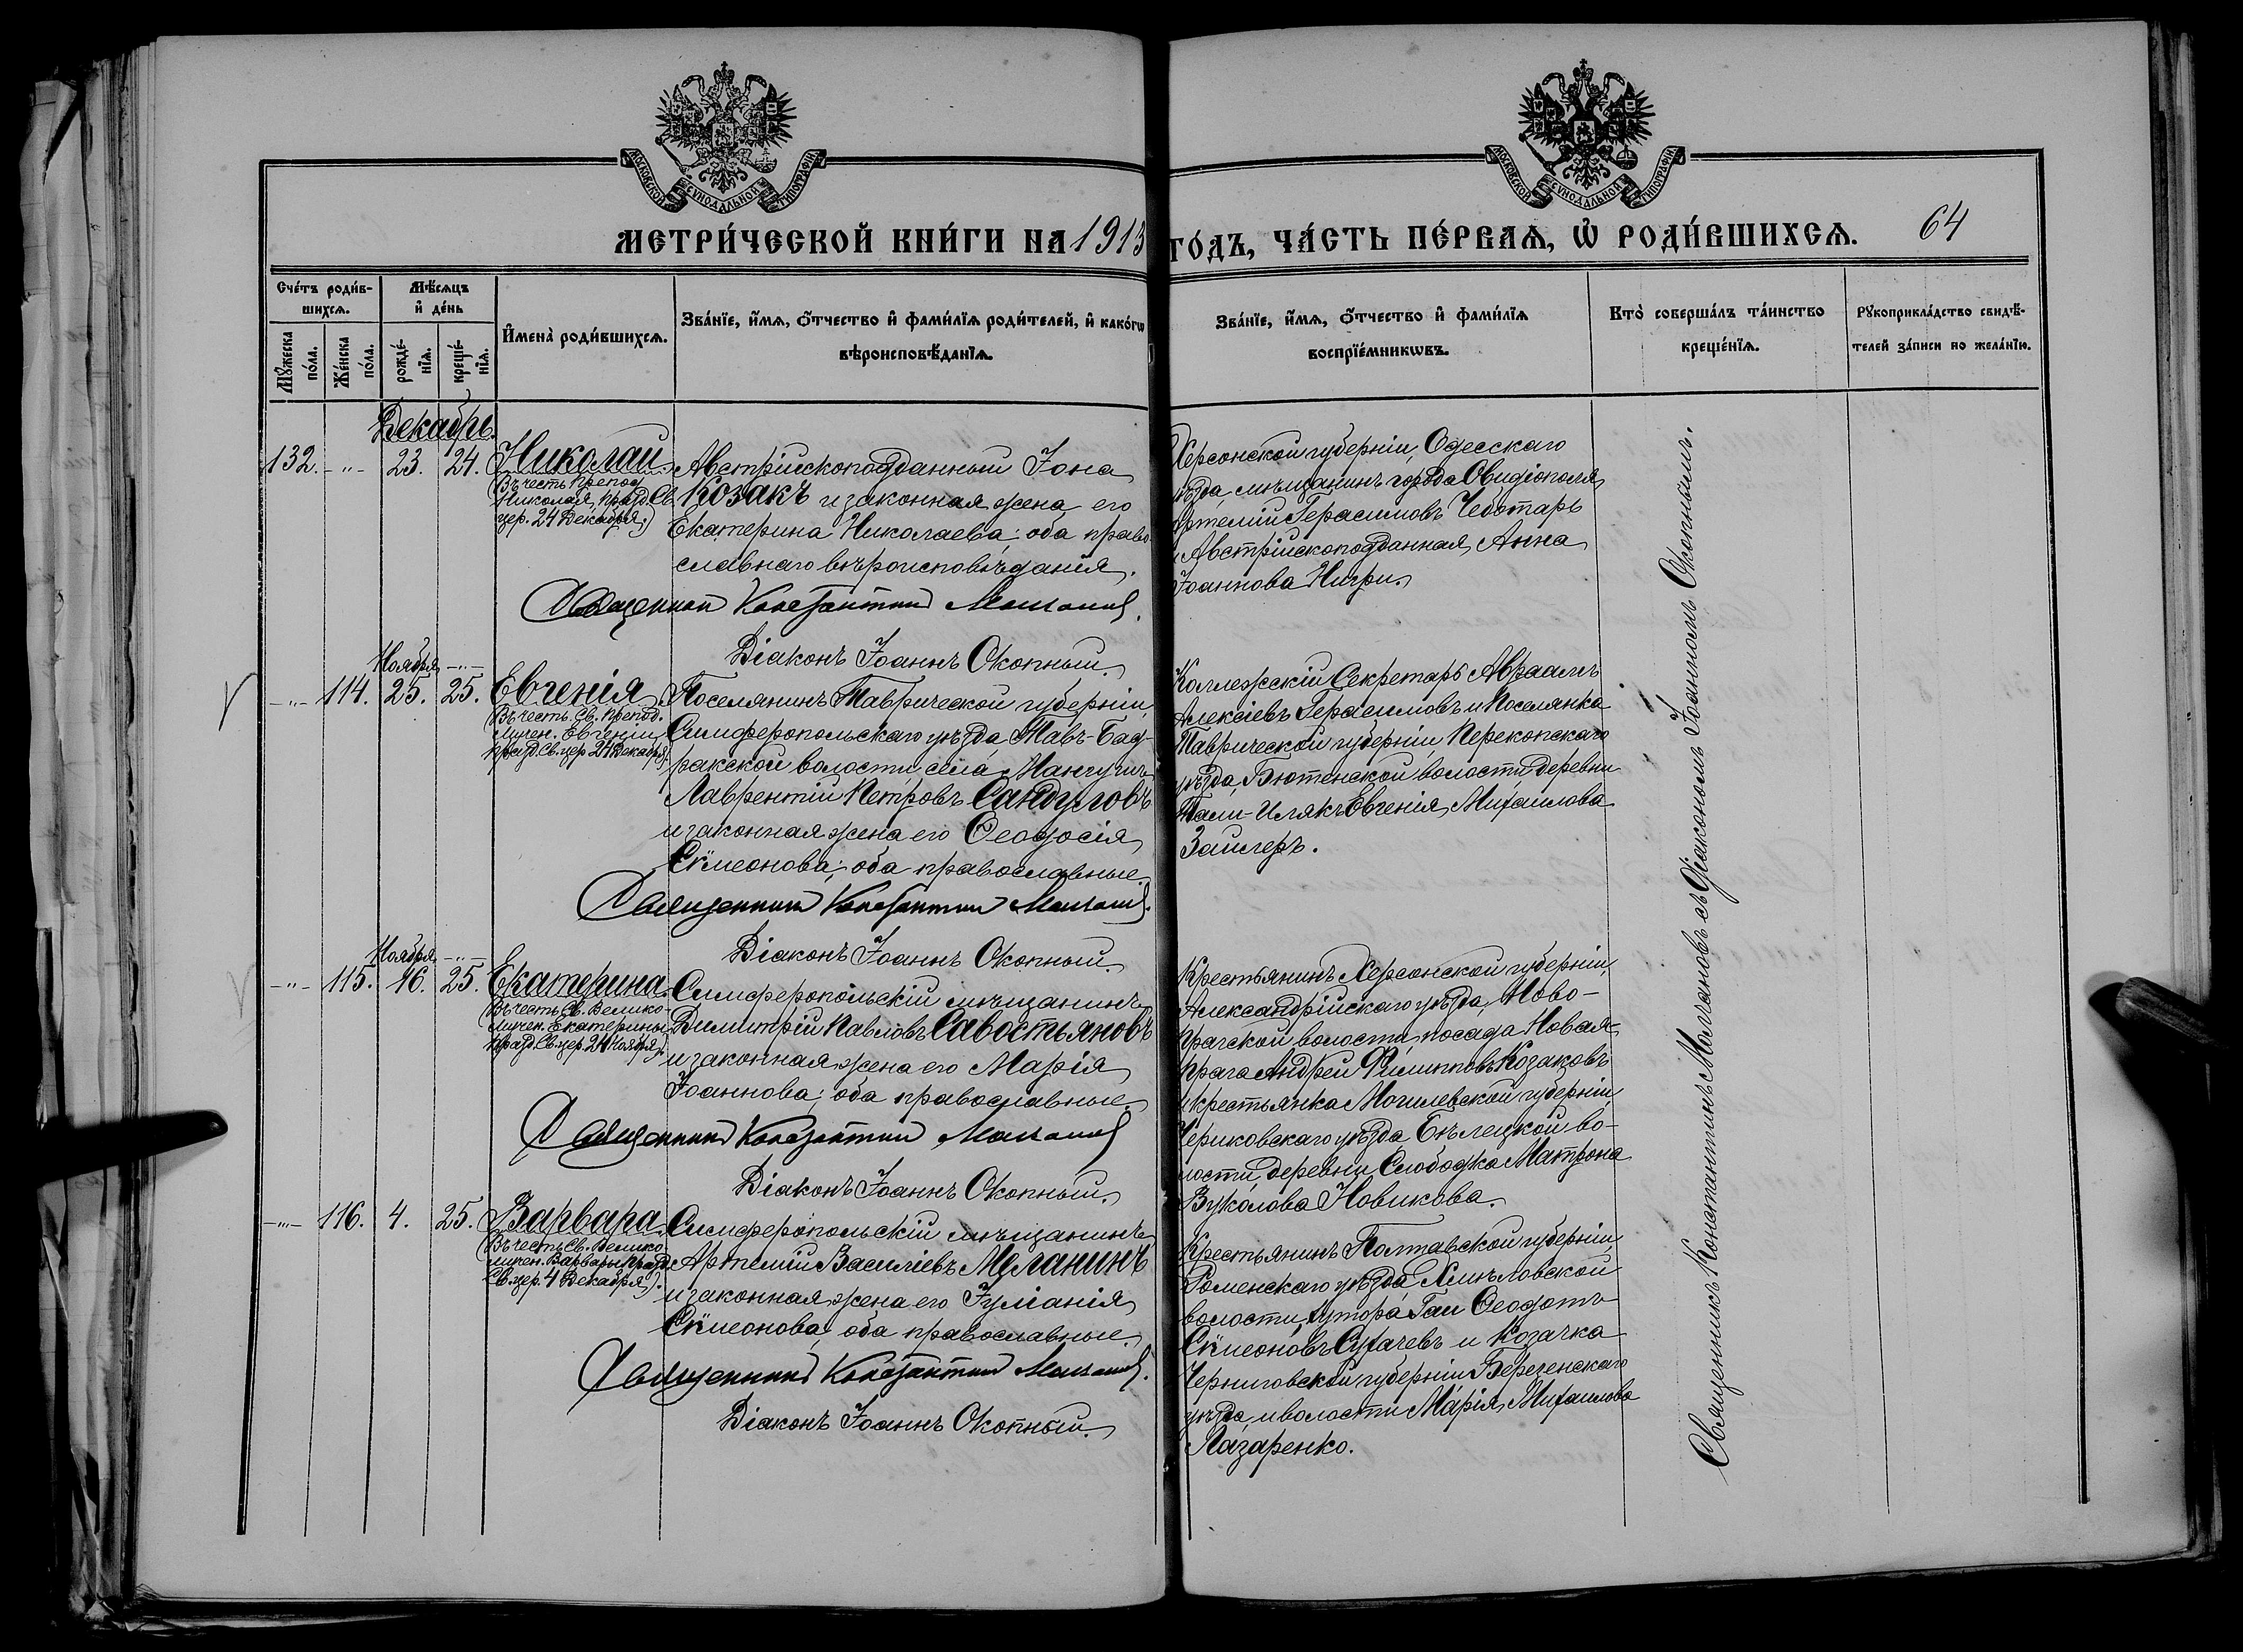 МОСКОВСКОЙ СѴНОДАЛЬНОЙ ТИПОГРАФІИ
МОСКОВСКОЙ СѴНОДАЛЬНОЙ ТИПОГРАФІИ
МЕТРИ́ЧЕСКОЙ КНИ́ГИ НА 1913
ГО́ДЪ, ЧА́СТЬ ПЕ́РВАѦ, Ѡ҆ РОДИ́ВШИХСѦ.
64
Сче́тъ роди́в-
шихсѧ.
Мꙋ́жеска
по́ла.
Же́нска
по́ла.
Мѣ́сѧцъ
и҆ де́нь
рожде́-
нїѧ.
креще́-
нїѧ.
И҆мена̀ роди́вшихсѧ.
Зва́нїе, и҆́мѧ, ѻ҆́тчество и҆ фами́лїѧ роди́телей, и҆ како́гѡ
вѣроисповѣ́данїѧ.
Зва́нїе, и҆́мѧ, ѻ҆́тчество и҆ фами́лїѧ
воспрїе́мникѡвъ.
Кто̀ соверша́лъ та́инство
креще́нїѧ.
Рꙋкоприкла́дство свидѣ́-
телей за́писи по жела́нїю.
Декабрь.
132. -"- 23. 24. Николай.
(Въ честь Препод.
Николая, празд. Св.
цер. 24 Декабря.)
Австрійскоподданный Іона
Козакъ и законная жена его
Екатерина Николаева; оба право-
славнаго вѣроисповѣданія.
Священник Константин Молчанов.
Діаконъ Іоаннъ Окопный.
Херсонской губерніи, Одесскаго
уѣзда, мѣщанинъ города Овидіополя
Артемій Герасимовъ Чеботарь
и Австрійскоподданная Анна
Іоаннова Нигри.
Ноября -"-
-"- 114. 25. 25. Евгенія
(Въ честь Св. Препод.
мучен. Евгеніи,
празд. Св. цер. 24 Декабря).
Поселянинъ Таврической губерніи,
Симферопольскаго уѣзда Тавъ-Бад-
ракской волости, села Мангушъ
Лаврентій Петровъ Сандуловъ
и законная жена его Ѳеодосія
Сѵмеонова; оба православные.
Священник Константин Молчанов.
Діаконъ Іоаннъ Окопный.
Коллежскій Секретарь Авраамъ
Алексіевъ Герасимовъ и Поселянка
Таврической губерніи, Перекопскаго
уѣзда, Бютенской волости, деревни
Евгенія Михаилова
Ноября -"-
-"- 115. 16. 25. Екатерина.
(Въ честь Св. Велико-
мучен. Екатерины,
празд. Св. цер. 24 Ноября).
Симферопольскій мѣщанинъ
Димитрій Павловъ Савостьяновъ
и законная жена его Марія
Іоаннова; оба православные.
Священник Константин Молчанов
Діаконъ Іоаннъ Окопный.
Крестьянинъ Херсонской губерніи,
Александрійскаго уѣзда, Ново-
Прагской волости, посада Новая-
Прага Андрей Филипповъ Козаковъ
и крестьянка Могилевской губерніи,
Чериковскаго уѣзда, Бѣлецкой во-
лости, деревни Слободка Матрона
Вуколова Новикова.
-"- 116. 4. 25. Варвара.
(Въ честь Св. Велико-
мучен. Варвары, празд.
Св. цер. 4 Декабря).
Симферопольскій мѣщанинъ
Артемій Василіевъ Меланинъ
и законная жена его Іуліанія
Сѵмеонова, оба православные.
Священник Константин Молчанов.
Діаконъ Іоаннъ Окопный.
Крестьянинъ Полтавской губерніи,
Роменскаго уѣзда, Хмѣловской
волости, хутора Гаи Ѳеодотъ
Сѵмеоновъ Сухачевъ и Козачка
Черниговской губерніи Березенскаго
уѣзда и волости Марія Михаилова
Лазаренко.
Священникъ Константинъ Молчановъ съ діакономъ Іоанномъ Окопнымъ.